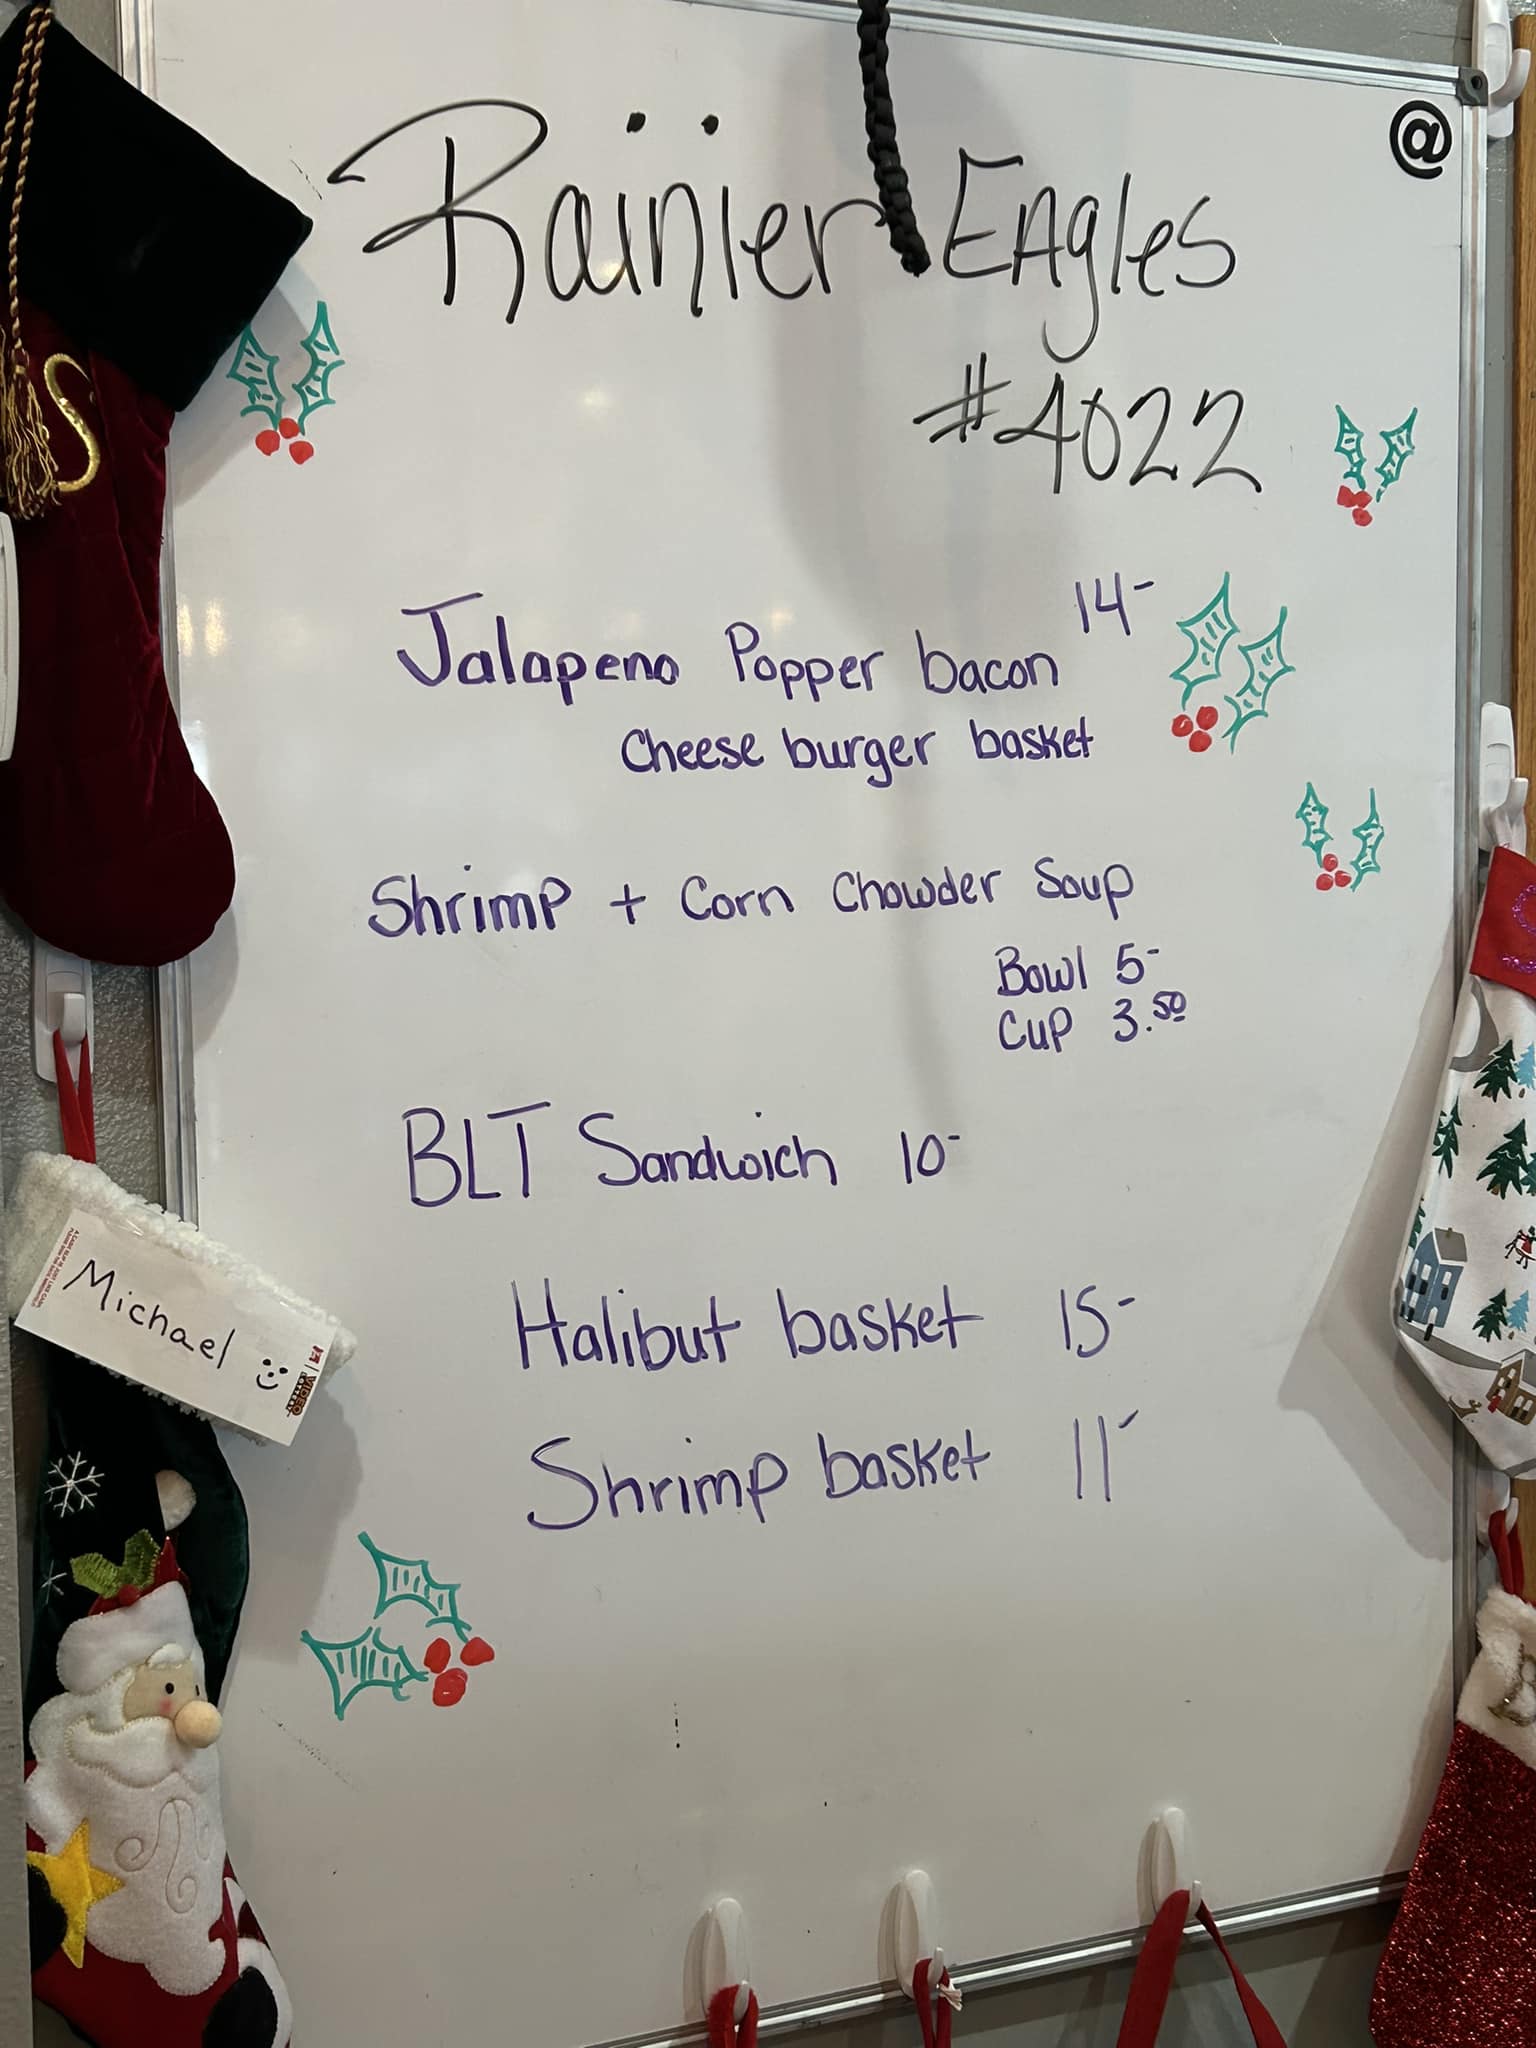 @
Rainier Eagles
#4022
Jalapeno Popper bacon 14-
Cheese burger basket
Shrimp + Corn Chowder Soup
Bowl 5-
Cup 3.50
BLT Sandwich 10-
Halibut basket 15-
Shrimp basket 11-
S
Michael
VIDEO